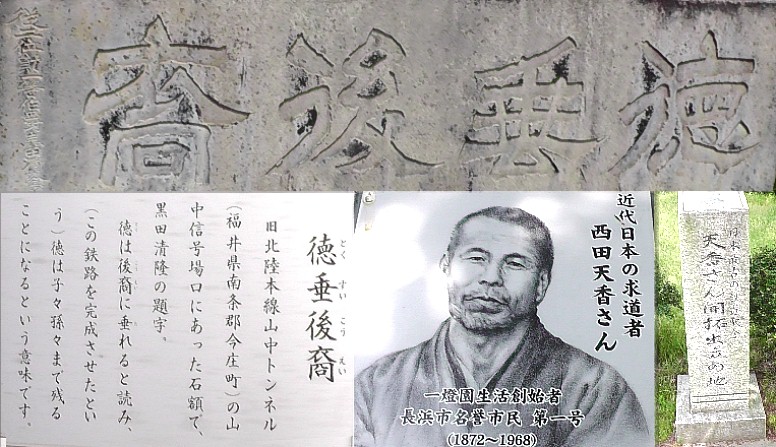 徳垂後裔
徳垂後裔
とくすいこうえい
旧北陸本線山中トンネル
(福井県南条郡今庄町)の山
中信号場口にあった石額で、
黒田清隆の題字。
徳は後裔に垂れると読み、
(この鉄路を完成させたとい
う)徳は子々孫々まで残る
ことになるという意味です。
近代日本の求道者
西田天香さん
一燈園生活創始者
長浜市名誉市民 第一号
(1872～1968)
天香さん開拓